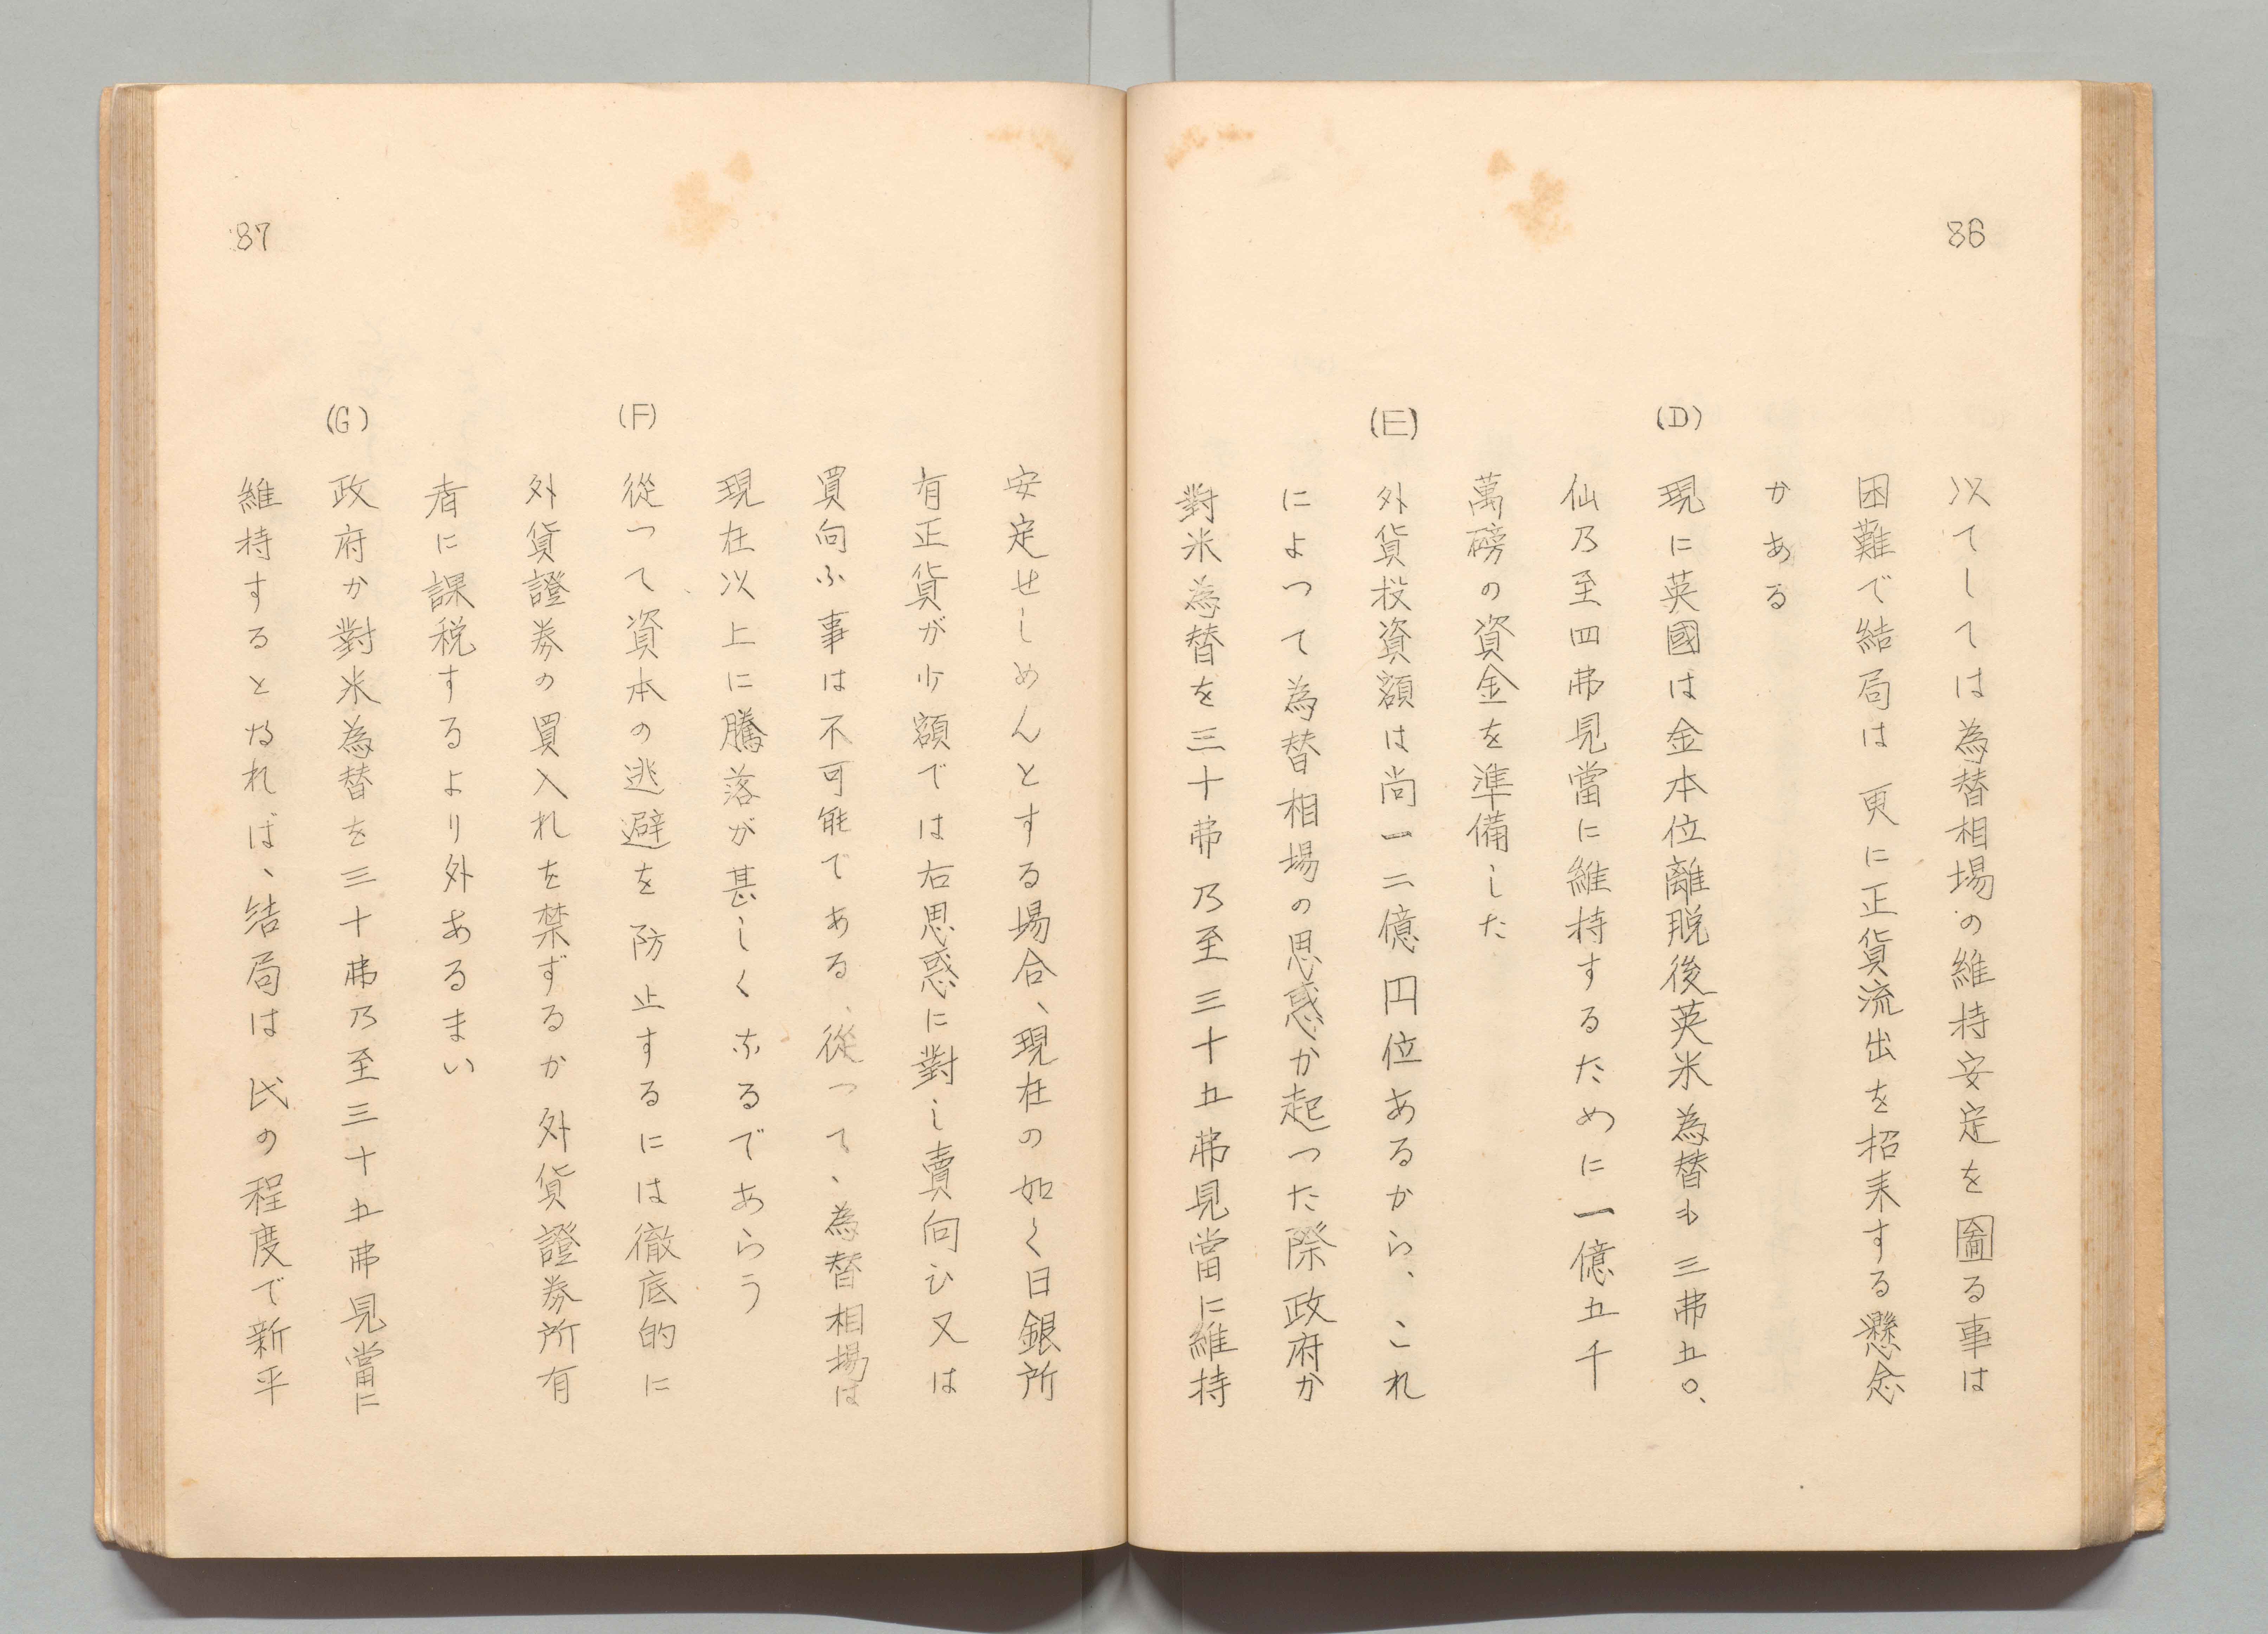 86
以てしては為替相場の維持安定を圖る事は
困難で結局は更に正貨流出を招来する懸念
かある
(D) 現に英國は金本位離脱後英米為替も三弗五〇、
仙乃至四弗見當に維持するために一億五千
萬磅の資金を準備した
(E) 外貨投資額は尚一二億円位あるから、これ
によつて為替相場の思惑か起つた際政府か
對米為替を三十弗乃至三十五弗見當に維持
安定せしめんとする場合、現在の如く日銀所
有正貨が少額では右思惑に對し賣向ひ又は
買向ふ事は不可能である、從つて、為替相場は
現在以上に騰落が甚しくなるであらう
(F) 從つて資本の逃避を防止するには徹底的に
外貨證券の買入れを禁ずるか外貨證券所有
者に課税するより外あるまい
(G) 政府か對米為替を三十弗乃至三十五弗見當に
維持するとなれば、結局は氏の程度で新平
87